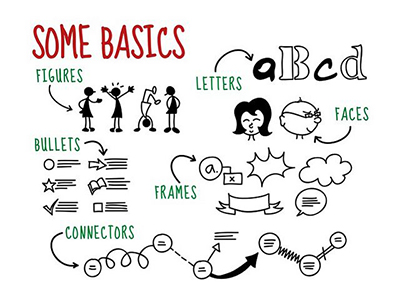 SOME BASICS
FIGURES
LETTERS
aBcd
FACES
BULLETS
FRAMES
a.
x
CONNECTORS